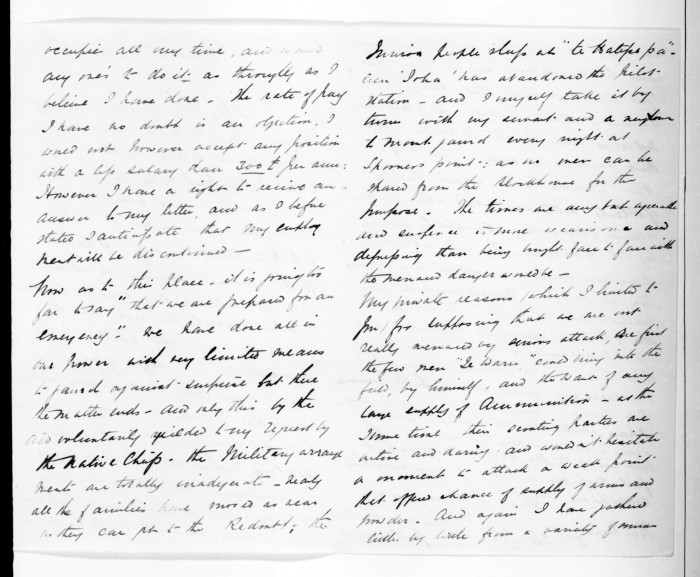 occupies all my time, and would
any one's to do it as throughly as I
believe I have done. The rate of pay
I have no doubt is an objection, I
would not however accept any position
with a less salary than 300£ per ann:
However I have a right to receive an
answer to my letter, and as I before
stated I anticipate that my employ
ment will be discontinued —
Now as to this place. it is going too
far to say "that we are prepared for an
emergency". We have done all in
our power with very limited means
to guard against surprise but there
the matter ends - and only this by the
aid voluntarily yielded to my request by
the Native Chiefs. The Military arrange
ments are totally inadequate - nearly
all the families have moved as near
as they can get to the Redoubt; the
people sleep at "te Hatepe pa" -
has abandoned the Pilot
Station - and I myself take it by
turns with my servant and a neighbour
to mount guard every night at
Spooners point: as no men can be
spared from the blockhouse for the
purpose. The times are any but agreeable
and suspense is more wearisome and
depressing than being brought face to face with
the menaced danger would be —
My private reasons (which I limited to
for supposing that we are not
really menaced by serious attack, are first
the few men "Te Waru" could bring into the
field, by himself, and the want of any
large supply of Ammunition - at the
same time their scouting parties are
active and daring and wouldn't hesitate
a moment to attack a weak point
that offered chance of supply of arms and
powder. And again I have gathered
little by little from a variety of